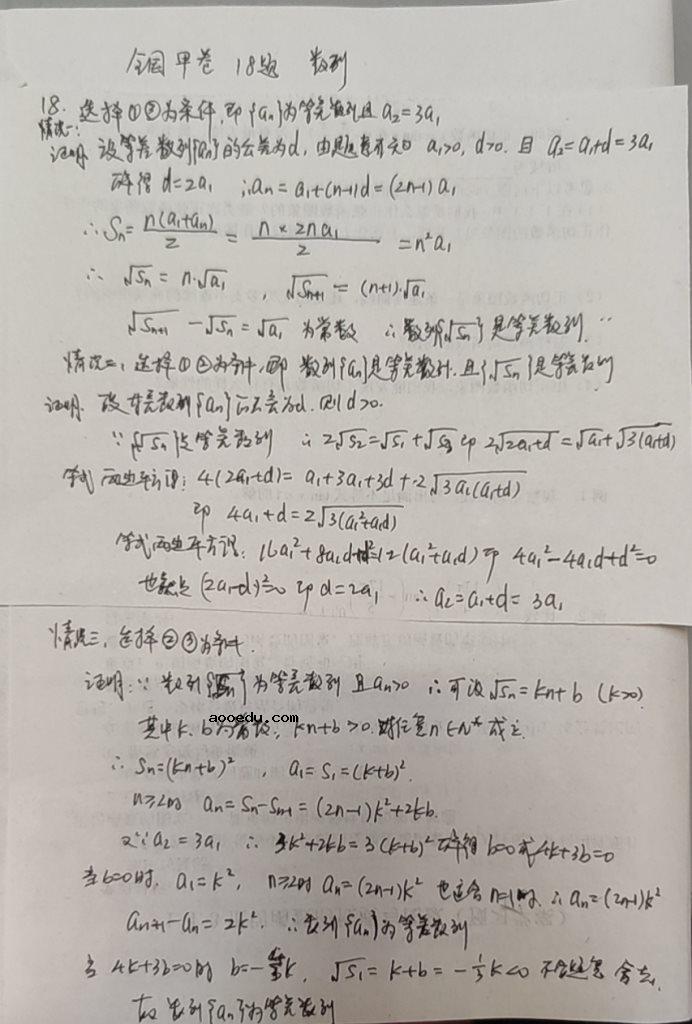 全国甲卷 18题 数列
18. 选择①③为条件,即{an}为等差数列且a₂=3a₁
情况一:
证明: 设等差数列{an}的公差为d, 由题意可知 a₁>0, d>0. 且 a₂=a₁+d=3a₁
解得 d=2a₁ ∴an=a₁+(n-1)d=(2n-1)a₁
∴Sn=n(a₁+an)/2 = n×2na₁/2 =n²a₁
∴ √Sn = n·√a₁ , √Sn+1 = (n+1)·√a₁
√Sn+1 - √Sn = √a₁ 为常数 ∴数列{√Sn}是等差数列.
情况二, 选择①②为条件, 即 数列{an}是等差数列, 且{√Sn}是等差数列
证明. 设等差数列{an}的公差为d. 则d>0.
∵{√Sn}是等差数列 ∴2√S₂=√S₁+√S₃ 即 2√(2a₁+d)=√a₁+√3(a₁+d)
等式两边平方得: 4(2a₁+d)= a₁+3a₁+3d+2√3a₁(a₁+d)
即 4a₁+d=2√3(a₁²+a₁d)
等式两边平方得: 16a₁²+8a₁d+d²=12(a₁²+a₁d) 即 4a₁²-4a₁d+d²=0
也就是 (2a₁-d)²=0 即 d=2a₁ ∴a₂=a₁+d= 3a₁
情况三, 选择②③为条件.
证明: ∵ 数列{√Sn}为等差数列 且an>0 ∴可设√Sn=kn+b (k>0)
aooedu.com
其中k, b为常数, kn+b>0. 对任意n∈N* 成立.
∴ Sn=(kn+b)² , a₁=S₁=(k+b)².
n≥2时 an=Sn-Sn-1=(2n-1)k²+2kb.
又∵a₂=3a₁ ∴ 3k²+2kb=3(k+b)² 解得 b=0或4k+3b=0
当b=0时, a₁=k², n≥2时 an=(2n-1)k² 也适合n=1时, ∴an=(2n-1)k²
an+1-an=2k². ∴数列{an}为等差数列
当 4k+3b=0时 b=-4/3k, √S₁=k+b=-1/3k<0 不合题意 舍去.
故 数列{an}为等差数列